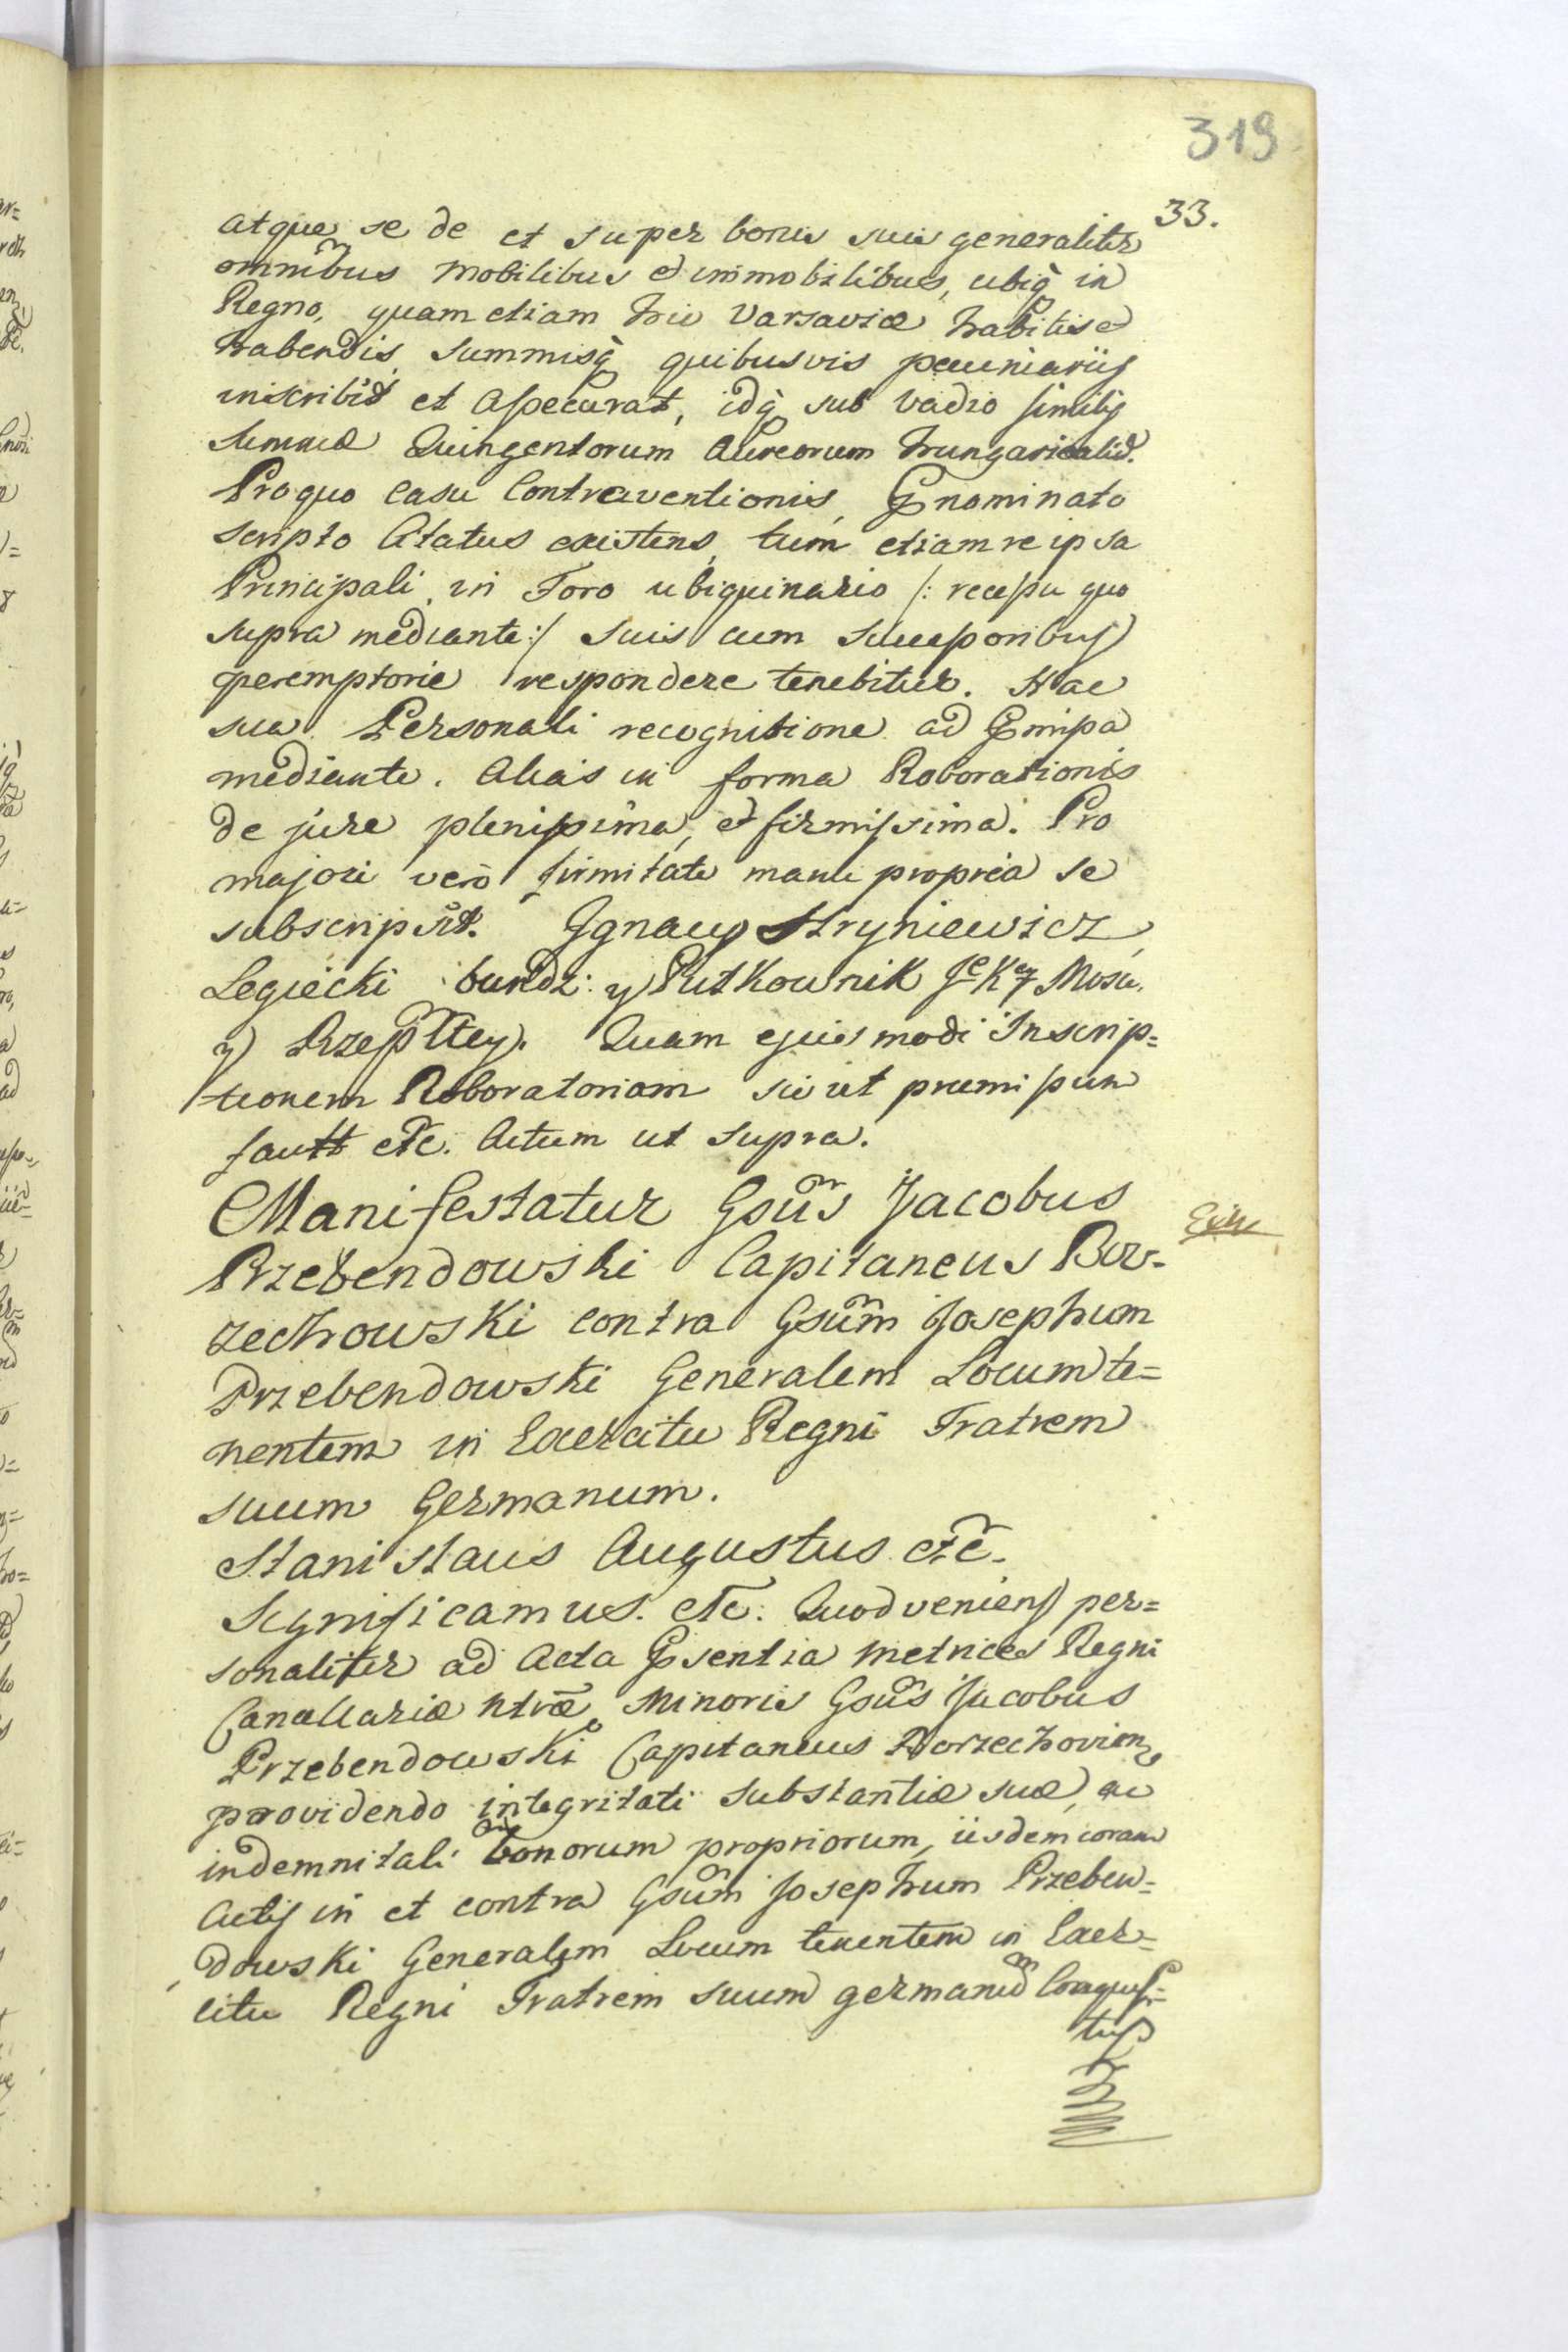 319
33.
atque se de et super bonis suis generaliter
omnibus mobilibus et immobilibus, ubiq̀ in
Regno, quam etiam hic Varsaviæ habitis et
habendis, summisq̀ quibusvis pecuniariis
inscribit et assecurat, idq̀ sub vadio similis
summæ Quingentorum Aureorum hungaricalid.
Pro quo casu Contraventionis, Pnominato
scripto Citatus existens, tum etiam re ipsa
Principali, in Foro ubiquinario /: recessu quo
supra mediante :/ suis cum successoribus
peremptorie respondere tenebitur. Hac
sua Personali recognitione ad Pmissa
mediante. Alias in forma Roborationis
de jure plenissima, et firmissima. Pro
majori verò firmitate manu propria se
subscripsit. Ignacy Hryniewicz
Legiecki Putkownik J K Mosci
y Rzepltey. Quam ejusmodi Inscrip=
tionem Roboratoriam sicut præmissum
factt etc. Actum ut supra.
Manifestatur Gsũs Jacobus
Przebendowski Capitaneus Bor-
zechowski contra Gsũm Josephum
Przebendowski Generalem Locumte=
nentem in Exercitu Regni Fratrem
suum Germanum.
Stanislaus Augustus etc̃.
Significamus. etc̃. Quod veniens per=
sonaliter ad Acta Psentia Metrices Regni
Cancellariæ Ntræ Minoris Gsũs Jacobus
Przebendowski Capitaneus Borzechovien,
providendo integritati substantiæ suæ, ac
indemnitati bonorum propriorum, iisdem coram
Actis in et contra Gsũm Josephum Przeben=
dowski Generalem Locum tenentem in Exer=
citu Regni Fratrem suum germanũ Conquæs=
tus